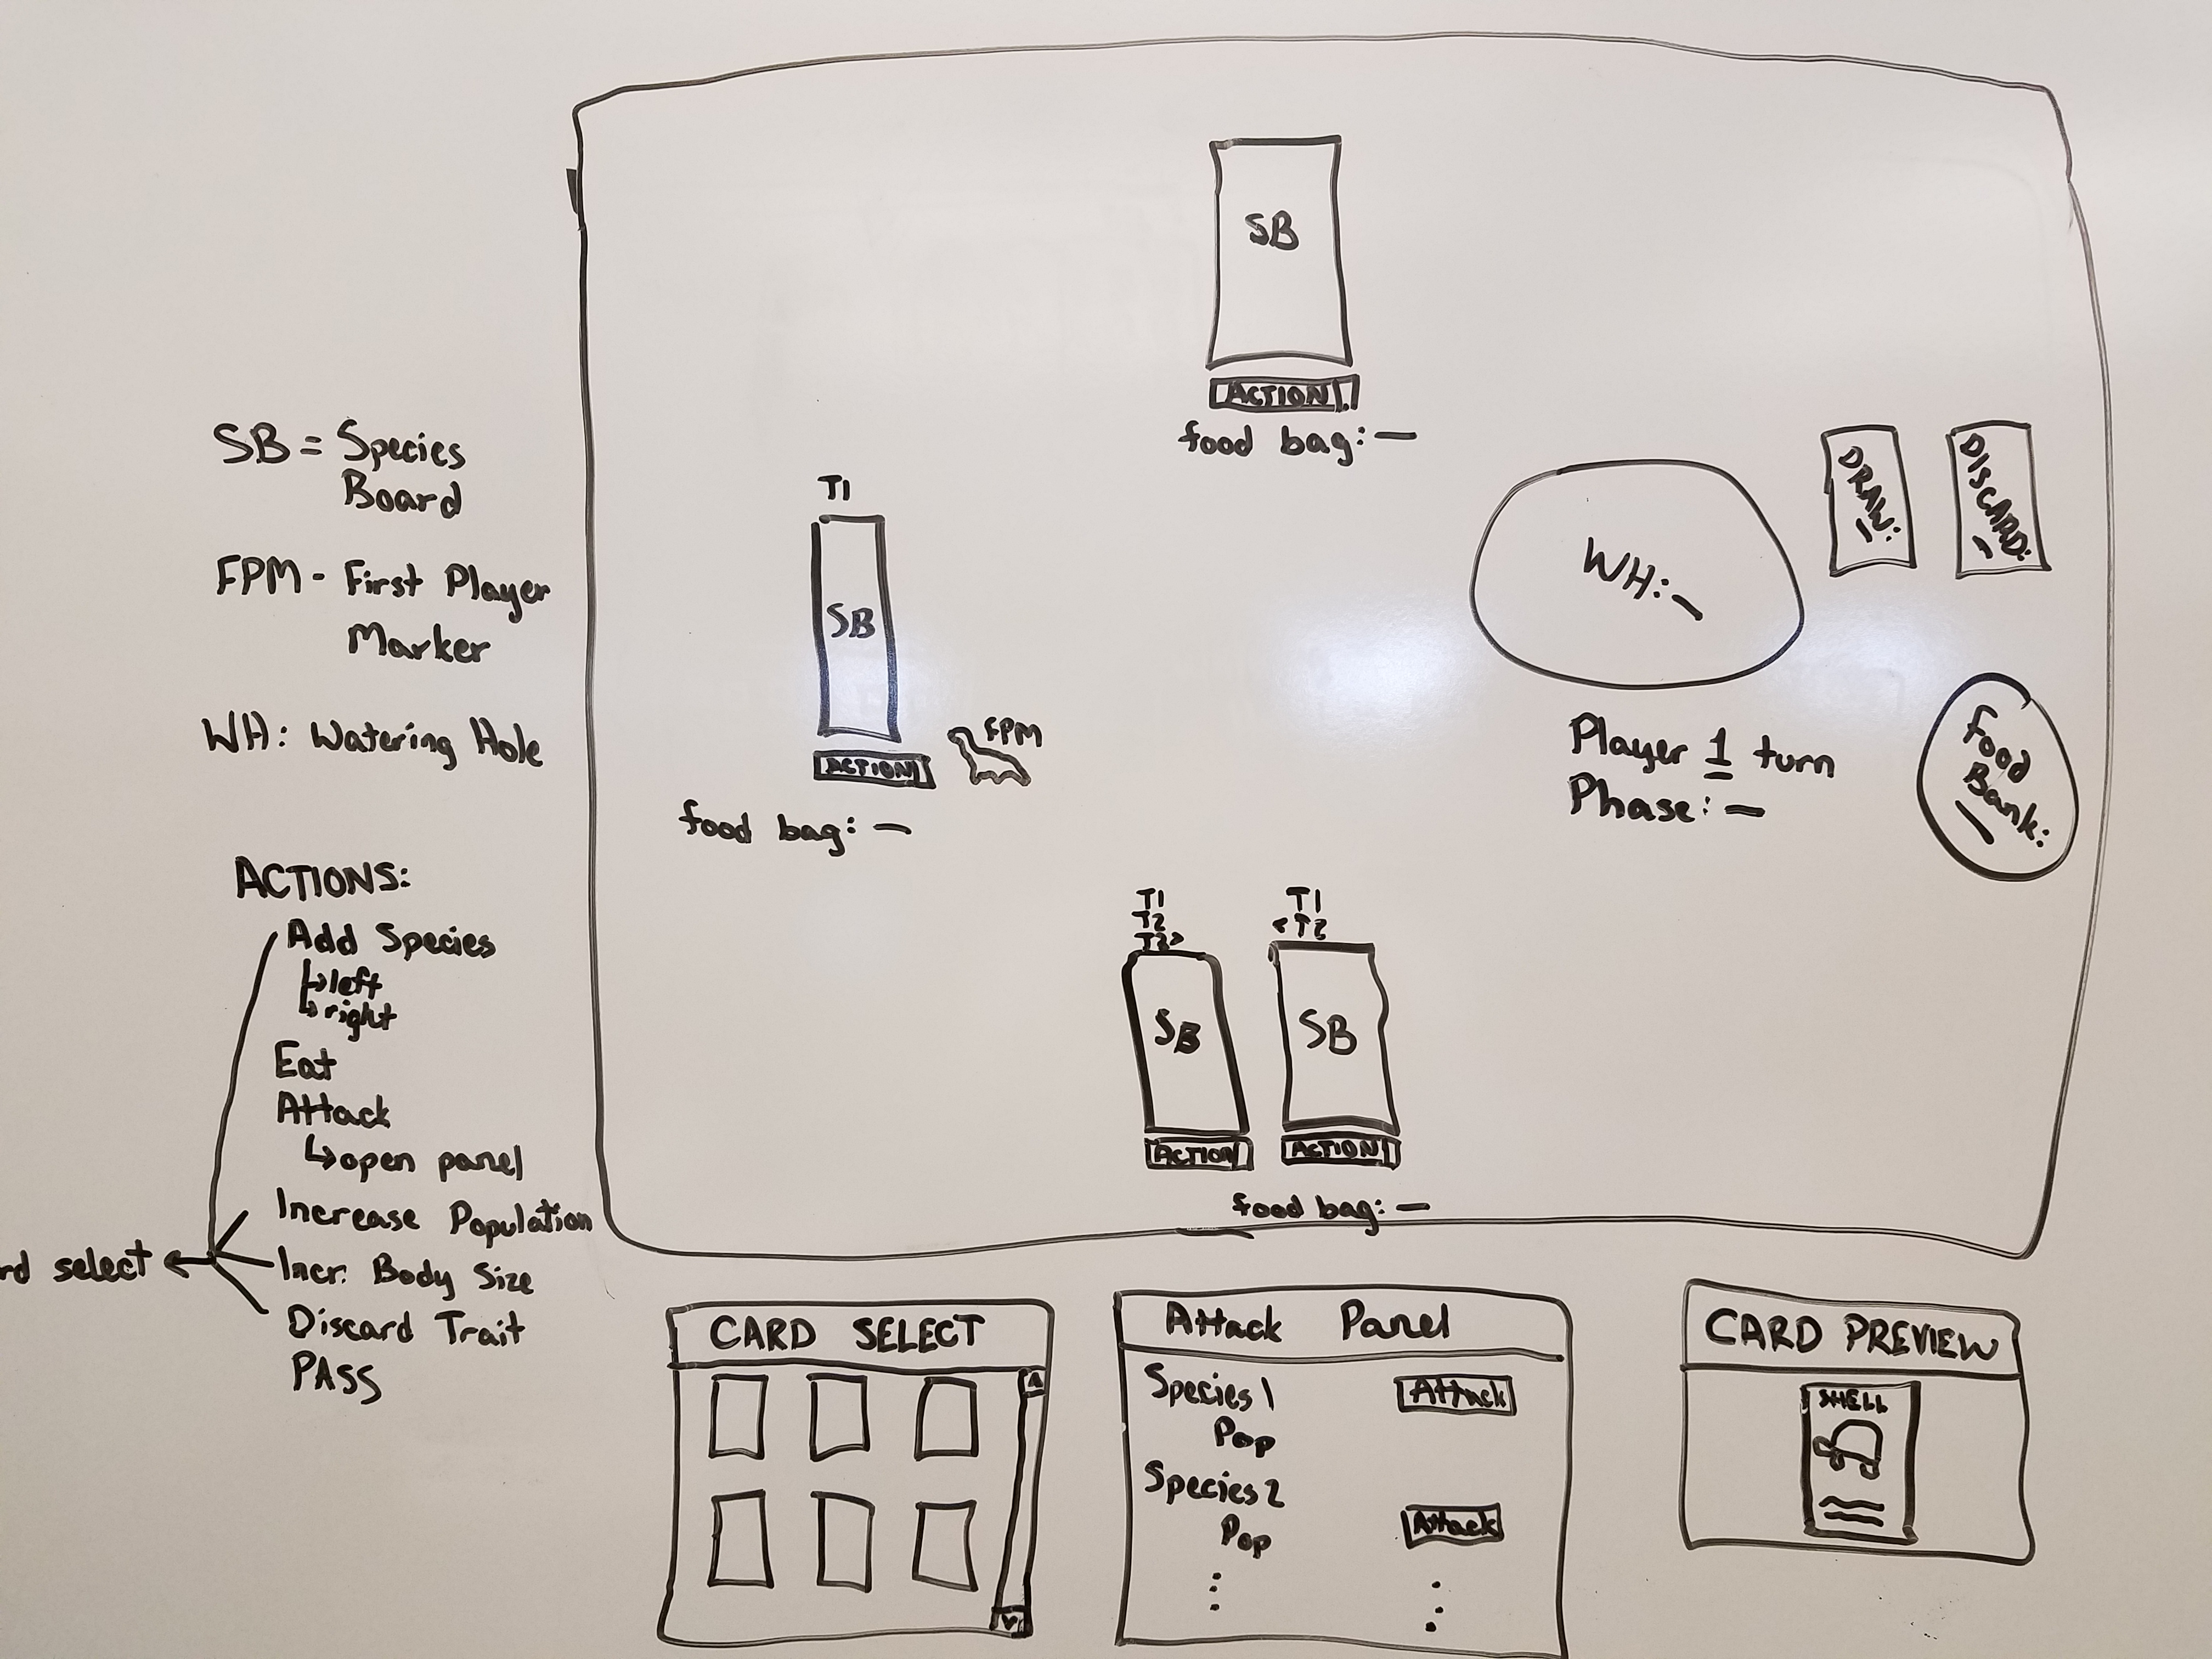 SB = Species
Board
FPM - First Player
Marker
WH: Watering Hole
ACTIONS:
Add Species
left
right
Eat
Attack
open panel
Increase Population
rd select
Incr. Body Size
Discard Trait
PASS
SB
ACTION
food bag: —
T1
SB
ACTION
FPM
food bag: —
WH: —
DRAW: —
DISCARD: —
Player 1 turn
Phase: —
Food
Bank:
—
T1
T2
T3>
SB
ACTION
T1
<T2
SB
ACTION
food bag: —
CARD SELECT
Attack Panel
Species 1
Attack
Pop
Species 2
Attack
Pop
CARD PREVIEW
SHELL